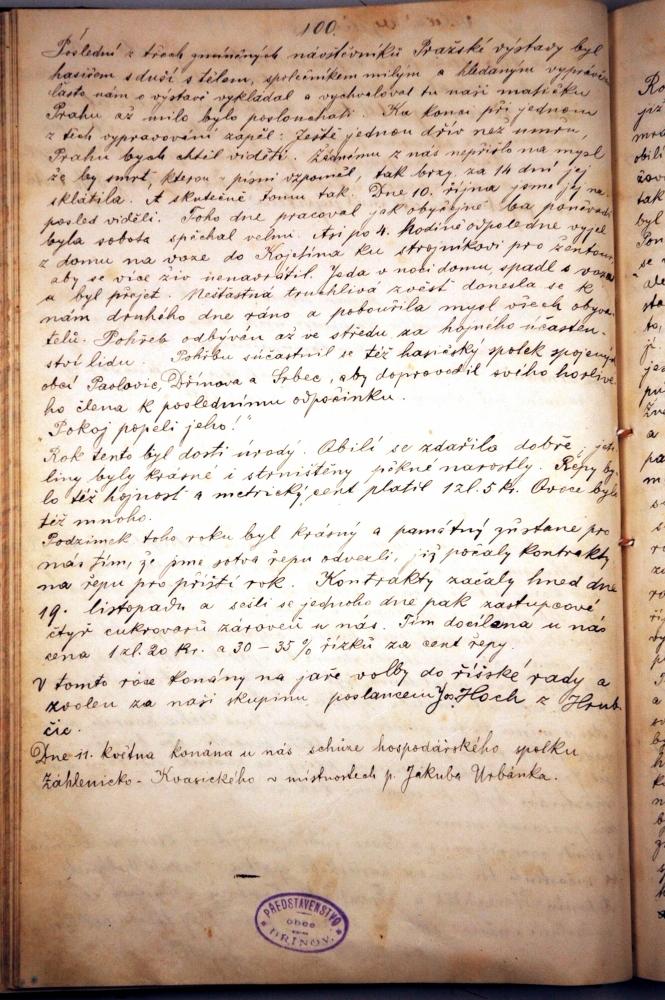 100.
Poslední z třech zmíněných návštěvníků Pražské výstavy byl
hasičem s duší s tělem, společníkem milým a hledaným
často nám o výstavě vykládal a vychvaloval tu naši matičku
Prahu až milo bylo poslouchati. Ku konci při jednom
z těch vypravování zapěl: Ještě jednou dřív než umřu,
Prahu bych chtěl viděti. Žádnému z nás nepřišlo na mysl
že by smrt, kterou v písni vzpomněl, tak brzy, za 14 dní jej
sklátila. A skutečně tomu tak. Dne 10. října jsme jej na-
posled viděli. Toho dne pracoval jak obyčejně ba poněvadž
byla sobota spěchal velmi. Asi po 4. hodině odpoledne vyjel
z domu na voze do Kojetína ku strojníkovi pro žentour,
aby se více živ nenavrátil. Jeda v noci domů, spadl s vozu
a byl přejet. Nešťastná truchlivá zvěst donesla se k
nám druhého dne ráno a pobouřila mysl všech obyva-
telů. Pohřeb odbýván až ve středu za hojného účasten-
ství lidu. Pohřbu súčastnil se též hasičský spolek spojených
obcí Pavlovic, Dřínova a Srbec, aby doprovodil svého horlivé-
ho člena k poslednímu odpočinku.
"Pokoj popeli jeho!"
Rok tento byl dosti úrodý. Obilí se zdařilo dobře, jete-
liny byly krásné i strništěny pěkně narostly. Řepy by-
lo též hojnost a metrický cent platil 1 zl. 5 kr. Ovoce bylo
též mnoho.
Podzimek toho roku byl krásný a památný zůstane pro
nás tím, že jsme sotva řepu odvezli, již počaly kontrakty
na řepu pro příští rok. Kontrakty začaly hned dne
19. listopadu a sešli se jednoho dne pak zastupcové
čtyř cukrovarů zároveň u nás. Tím docílena u nás
cena 1 zl. 20 kr. a 30 – 35 % řízků za cent řepy.
V tomto roce konány na jaře volby do říšské rady a
zvolen za naši skupinu poslancem Jos. Hoch z Hrub-
čic.
Dne 11. května konána u nás schůze hospodářského spolku
Záhlenicko - Kvasického v místnostech p. Jakuba Urbánka.
PŘEDSTAVENSTVO
obce
DŘÍNOV.